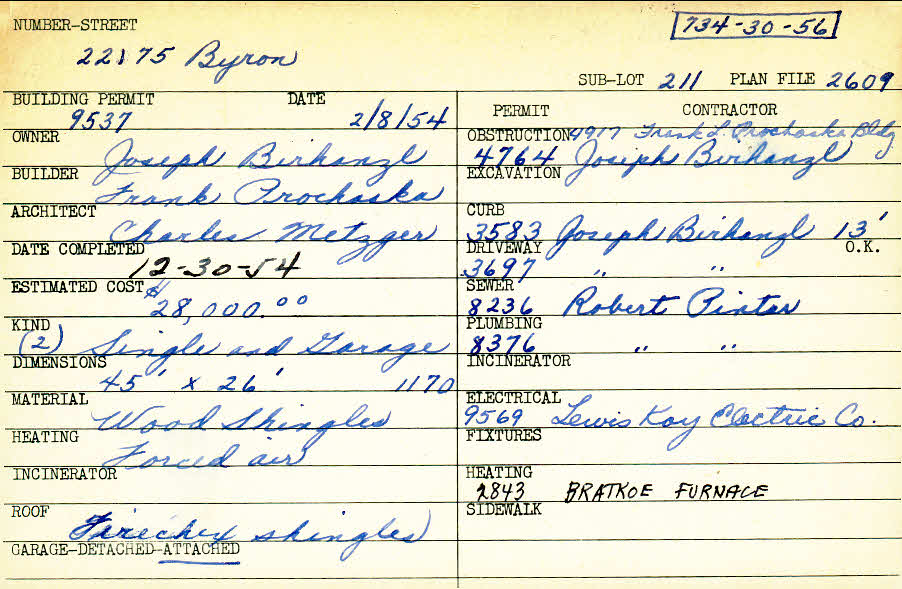 NUMBER-STREET
734-30-56
22175 Byron
SUB-LOT 211 PLAN FILE 2609
BUILDING PERMIT DATE
9537 2/8/54
OWNER
Joseph Birhanzl
BUILDER
Frank Prochaska
ARCHITECT
Charles Metzger
DATE COMPLETED
12-30-54
ESTIMATED COST
$28,000.00
KIND
(2) Single and Garage
DIMENSIONS
45' x 26' 1170
MATERIAL
Wood Shingles
HEATING
Forced air
INCINERATOR
ROOF
Firechex shingles
GARAGE-DETACHED-ATTACHED
PERMIT CONTRACTOR
OBSTRUCTION 4917 Frank L. Prochaska Bldg
4764 Joseph Birhanzl
EXCAVATION
CURB
3583 Joseph Birhanzl 13'
DRIVEWAY O.K.
3697 " "
SEWER
8236 Robert Pinter
PLUMBING
8376 " "
INCINERATOR
ELECTRICAL
9569 Lewis Kay Electric Co.
FIXTURES
HEATING
2843 BRATKOE FURNACE
SIDEWALK